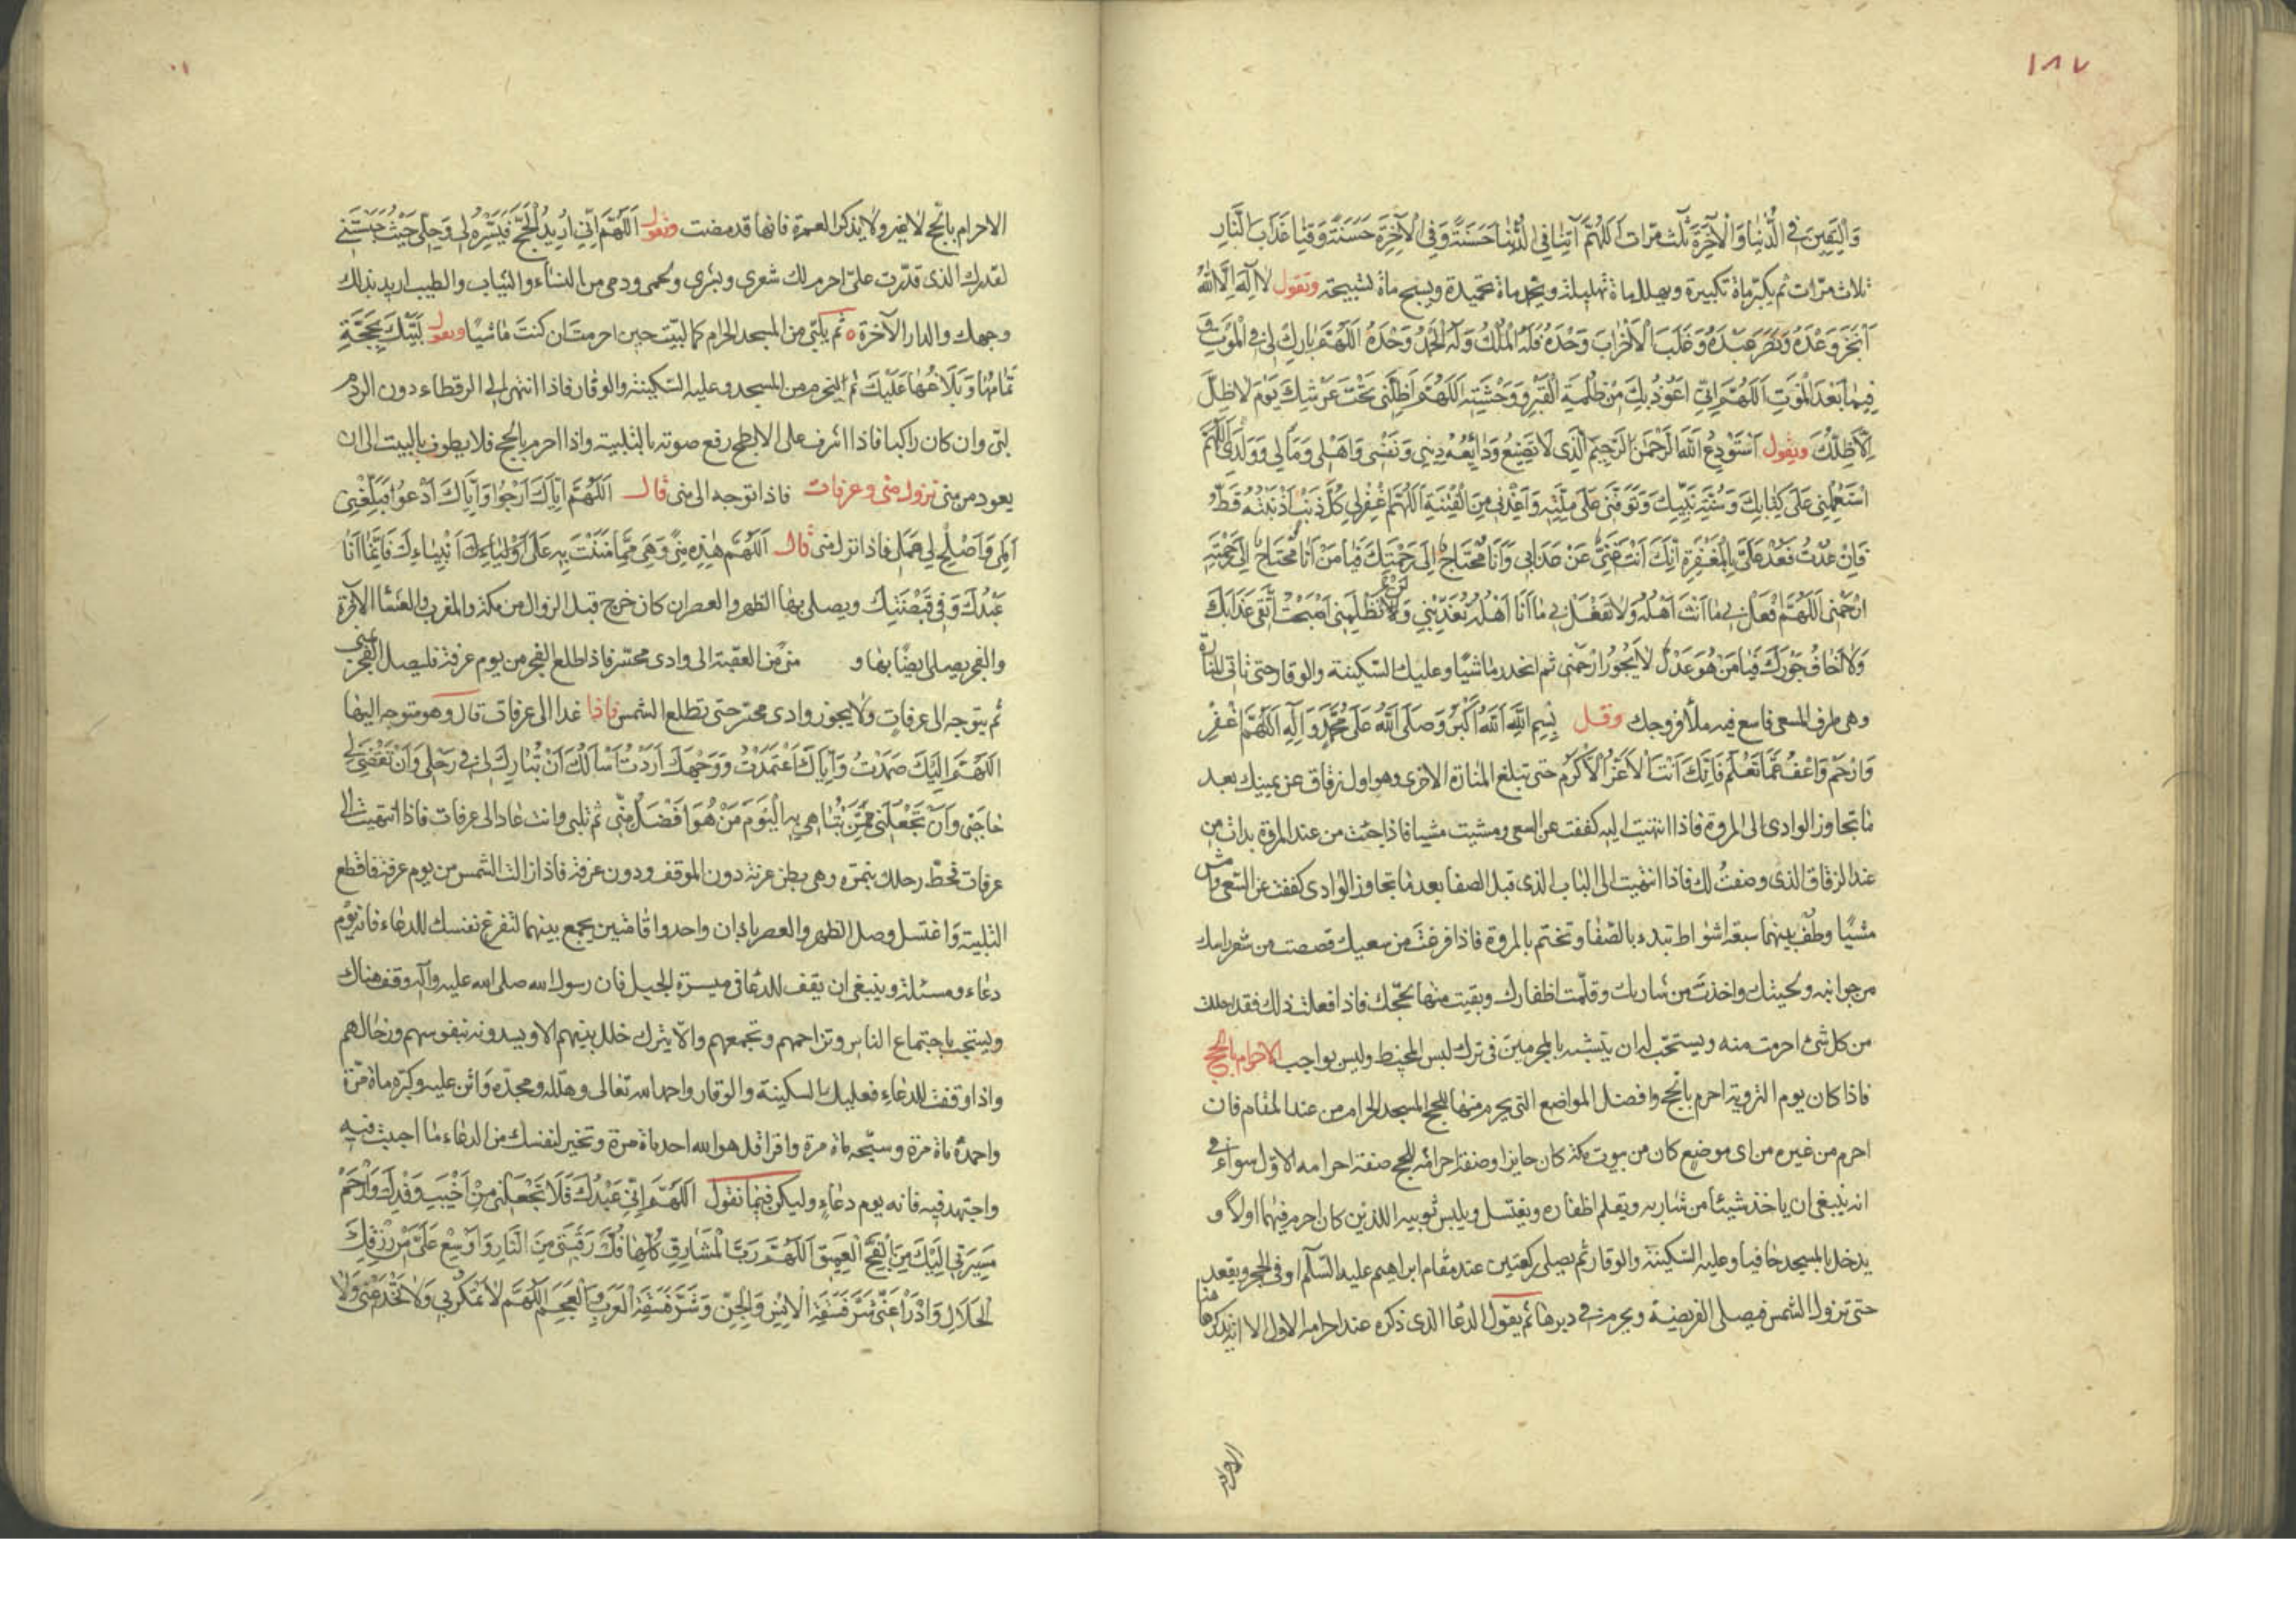 ١٨٧
وَالْيَقِينَ فِي الدُّنْيَا وَالْآخِرَةِ ثلث مرّات اَللّهُمَّ آتِنَا فِي الدُّنْيَا حَسَنَةً وَفِي الْآخِرَةِ حَسَنَةً وَقِنَا عَذَابَ النَّارِ
ثلاث مرّات ثم يكبّر ماة تكبيرة ويهلل ماة تهليلة ويحمد ماة تحميدة ويسبح ماة تسبيحة وتقول لا اله الا الله
اَنْجَزَ وَعْدَهُ وَنَصَرَ عَبْدَهُ وَغَلَبَ الْاَحْزَابَ وَحْدَهُ فَلَهُ الْمُلْكُ وَلَهُ الْحَمْدُ وَحْدَهُ اَللّهُمَّ بَارِكْ لِي فِي الْمَوْتِ وَ
فِيمَا بَعْدَ الْمَوْتِ اَللّهُمَّ اِنِّي اَعُوذُ بِكَ مِنْ ظُلْمَةِ الْقَبْرِ وَوَحْشَتِهِ اَللّهُمَّ اَظِلَّنِي تَحْتَ عَرْشِكَ يَوْمَ لَا ظِلَّ
اِلَّا ظِلُّكَ ويقول اَسْتَوْدِعُ اللهَ الرَّحْمنَ الرَّحِيمَ الَّذِي لَا يُضَيِّعُ وَدَائِعَهُ دِينِي وَنَفْسِي وَاَهْلِي وَمَالِي وَوَلَدِي اَللّهُمَّ
اسْتَعْمِلْنِي عَلَى كِتَابِكَ وَسُنَّةِ نَبِيِّكَ وَتَوَفَّنِي عَلَى مِلَّتِهِ وَاَعِذْنِي مِنَ الْفِتْنَةِ اَللّهُمَّ اغْفِرْ لِي كُلَّ ذَنْبٍ اَذْنَبْتُهُ قَطُّ
فَاِنْ عُدْتُ فَعُدْ عَلَيَّ بِالْمَغْفِرَةِ اِنَّكَ اَنْتَ غَنِيٌّ عَنْ عَذَابِي وَاَنَا مُحْتَاجٌ اِلَى رَحْمَتِكَ فَيَا مَنْ اَنَا مُحْتَاجٌ اِلَى رَحْمَتِهِ
ارْحَمْنِي اَللّهُمَّ افْعَلْ بِي مَا اَنْتَ اَهْلُهُ وَلَا تَفْعَلْ بِي مَا اَنَا اَهْلُهُ تُعَذِّبْنِي وَلَا تَظْلِمْنِي اَصْبَحْتُ اَتَّقِي عَذَابَكَ
وَلَا اَخَافُ جَوْرَكَ فَيَا مَنْ هُوَ عَدْلٌ لَا يَجُورُ ارْحَمْنِي ثم انحدر ماشيًا وعليك السّكينة والوقار حتى تاتي المنارة
وهي طرف المسعى فاسع فيه ملأ فروجك وقل بِسْمِ اللهِ اَللهُ اَكْبَرُ وَصَلَّى اللهُ عَلَى مُحَمَّدٍ وَآلِهِ اَللّهُمَّ اغْفِرْ
وَارْحَمْ وَاعْفُ عَمَّا تَعْلَمُ فَاِنَّكَ اَنْتَ الْاَعَزُّ الْاَكْرَمُ حتى تبلغ المنارة الاخرى وهو اول زقاق عن يمينك بعد
ما تجاوز الوادى الى المروة فاذا انتهيت اليه كففت عن السعى ومشيت مشيا فاذا جئت من عند المروة بدات من
عند الزقاق الذى وصفتُ لك فاذا انتهيت الى الباب الذى قبل الصفا بعد ما تجاوز الوادى كففت عن السّعى وامش
مشيًا وطُف بينهما سبعة اشواط تبدء بالصّفا وتختم بالمروة فاذا فرغتَ من سعيك قصصت من شعر راسك
من جوانبه ولحيتك واخذتَ من شاربك وقلّمت اظفارك وبقيت منها لحجّك فاذا فعلت ذلك فقد احللت
من كل شئ احرمت منه ويستحّب له ان يتشبه بالمحرمين فى ترك لبس المخيط وليس بواجب الاحرام بالحج
فاذا كان يوم التروية احرم بالحج وافضل المواضع التى يحرم منها للحج المسجد الحرام من عند المقام فان
احرم من غيره من اى موضع كان من بيوت مكة كان جايزا وصفة احرامه للحج صفة احرامه الاول سواء فى
انه ينبغى ان ياخذ شيئا من شاربه ويقلم اظفاره ويغتسل ويلبس ثوبيه اللذين كان احرم فيهما اولاً و
يدخل المسجد حافيا وعليه السّكينة والوقار ثم يصلى ركعتين عند مقام ابراهيم عليه السّلم او فى الحجر ويقعد
حتى تزول الشمس فيصلى الفريضة ويحرم فى دبرها ثم يقول الدعا الذى ذكره عند احرامه الاول الا انه يذكر هنا
الاحرام
الاحرام بالحج لا غير ولا يذكر العمرة فانها قد مضت وتقول اَللّهُمَّ اِنِّي اُرِيدُ الْحَجَّ فَيَسِّرْهُ لِي وَحُلَّنِي حَيْثُ حَبَسْتَنِي
لقدرك الذى قدّرت علىّ احرم لك شعرى وبشرى ولحمى ودمى من النساء والثياب والطيب اريد بذلك
وجهك والدار الآخرة ه ثم يلبّى من المسجد الحرام كما لبيّت حين احرمت ان كنتَ ماشيًا وتقول لَبَّيْكَ بِحَجَّةٍ
تَمَامُهَا وَبَلَاغُهَا عَلَيْكَ ثم ليخرم من المسجد وعليه السّكينة والوقار فاذا انتهى الى الرقطاء دون الردم
لبّى وان كان راكبا فاذا اشرف على الابطح رفع صوته بالتلبية واذا احرم بالحج فلا يطوف بالبيت الى ان
يعود من منى نزول منى وعرفات فاذا توجه الى منى قال اَللّهُمَّ اِيَّاكَ اَرْجُو وَاِيَّاكَ اَدْعُو فَبَلِّغْنِي
اَمَلِي وَاَصْلِحْ لِي عَمَلِي فاذا نزل منى قال اَللّهُمَّ هذِهِ مِنًى وَهِيَ مِمَّا مَنَنْتَ بِهِ عَلَى اَوْلِيَائِكَ اَنْبِيَاءِكَ فَاِنَّمَا اَنَا
عَبْدُكَ وَفِي قَبْضَتِكَ ويصلى بها الظهر والعصر ان كان خرج قبل الزوال من مكة والمغرب والعشا الآخرة
والفجر يصلى ايضًا بها و منى من العقبة الى وادى محسّر فاذا طلع الفجر من يوم عرفة فليصل الفجر بمنى
ثم يتوجه الى عرفاتٍ ولا يجوز وادى محسّر حتى تطلع الشمس فاذا غدا الى عرفات قال وهو متوجه اليها
اَللّهُمَّ اِلَيْكَ صَمَدْتُ وَاِيَّاكَ اعْتَمَدْتُ وَوَجْهَكَ اَرَدْتُ اَسْاَلُكَ اَنْ تُبَارِكَ لِي فِي رَحْلِي وَاَنْ تَقْضِيَ لِي
حَاجَتِي وَاَنْ تَجْعَلَنِي مِمَّنْ تُبَاهِي بِهِ الْيَوْمَ مَنْ هُوَ اَفْضَلُ مِنِّي ثم تلبى وانت غاد الى عرفات فاذا انتهيت الى
عرفات فحطّ رحلك بنمرة وهى بطن عرنة دون الموقف ودون عرفة فاذا زالت الشمس من يوم عرفة فاقطع
التلبية واغتسل وصل الظهر والعصر باذان واحد واقامتين يجمع بينهما لتفرغ نفسك للدعاء فانه يوم
دعاء ومسئلة وينبغى ان يقف للدعا فى ميسرة الجبل فان رسول الله صلى الله عليه وآله وقف هناك
ويستحب اجتماع الناس وتزاحمهم وتجمعهم والّا يترك خلل بينهم الا ويسدونه بنفوسهم ورحالهم
واذا وقفت للدعاء فعليك بالسكينة والوقار واحمد الله تعالى وهلله ومجدّه واثن عليه وكبّره ماة مرّة
واحمدهُ ماة مرّة وسبّحه ماة مرة واقرا قل هو الله احد ماة مرة وتخير لنفسك من الدعاء ما احببت فيه
واجتهد فيه فانه يوم دعاءٍ وليكن فيما تقول اَللّهُمَّ اِنِّي عَبْدُكَ فَلَا تَجْعَلْنِي مِنْ اَخْيَبِ وَفْدِكَ وَارْحَمْ
مَسِيرِي اِلَيْكَ مِنَ الْفَجِّ الْعَمِيقِ اَللّهُمَّ رَبَّ الْمَشَارِقِ كُلِّهَا فُكَّ رَقَبَتِي مِنَ النَّارِ وَاَوْسِعْ عَلَيَّ مِنْ رِزْقِكَ
الْحَلَالِ وَادْرَاْ عَنِّي شَرَّ فَسَقَةِ الْاِنْسِ وَالْجِنِّ وَشَرَّ فَسَقَةِ الْعَرَبِ وَالْعَجَمِ اَللّهُمَّ لَا تَمْكُرْ بِي وَلَا تَخْدَعْنِي وَلَا